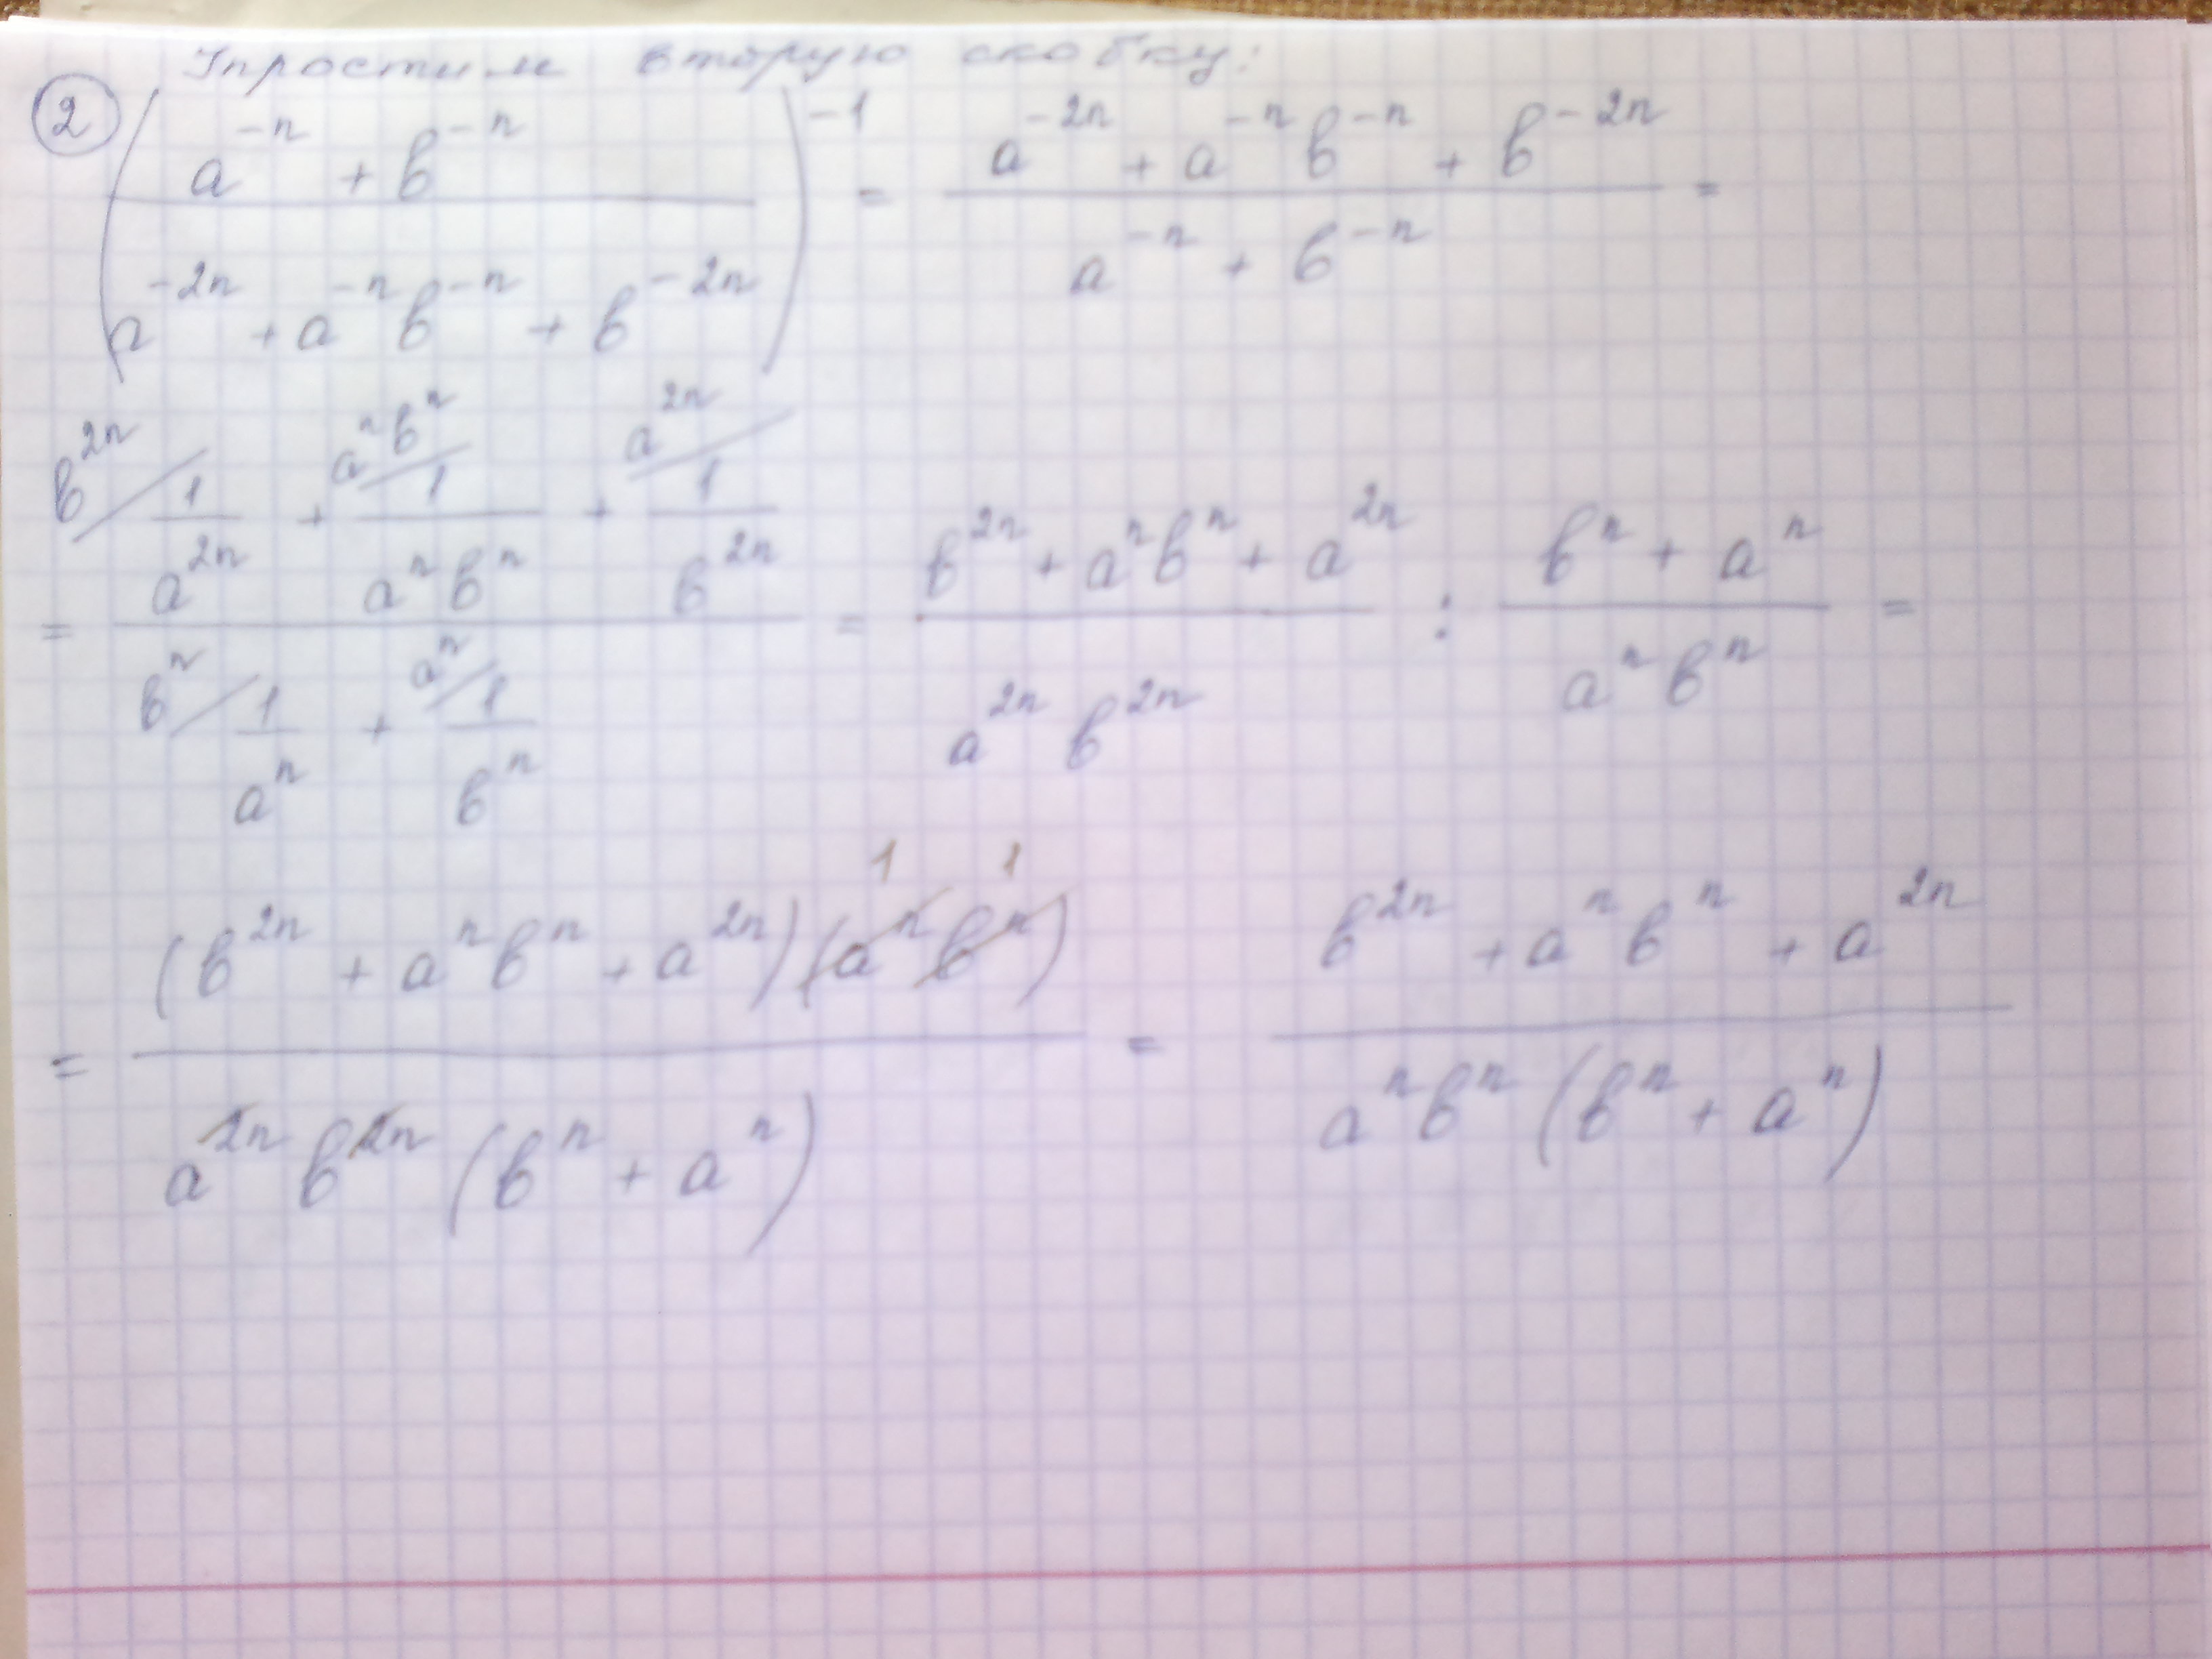 Упростим вторую скобку:
② ((a^{-n} + b^{-n}) / (a^{-2n} + a^{-n} b^{-n} + b^{-2n}))^{-1} = (a^{-2n} + a^{-n} b^{-n} + b^{-2n}) / (a^{-n} + b^{-n}) =
= (b^{2n}/ 1/a^{2n} + a^n b^n/ 1/(a^n b^n) + a^{2n}/ 1/b^{2n}) / (b^n/ 1/a^n + a^n/ 1/b^n) = (b^{2n} + a^n b^n + a^{2n}) / (a^{2n} b^{2n}) : (b^n + a^n) / (a^n b^n) =
= ((b^{2n} + a^n b^n + a^{2n}) (a^n b^n)) / (a^{2n} b^{2n} (b^n + a^n)) = (b^{2n} + a^n b^n + a^{2n}) / (a^n b^n (b^n + a^n))